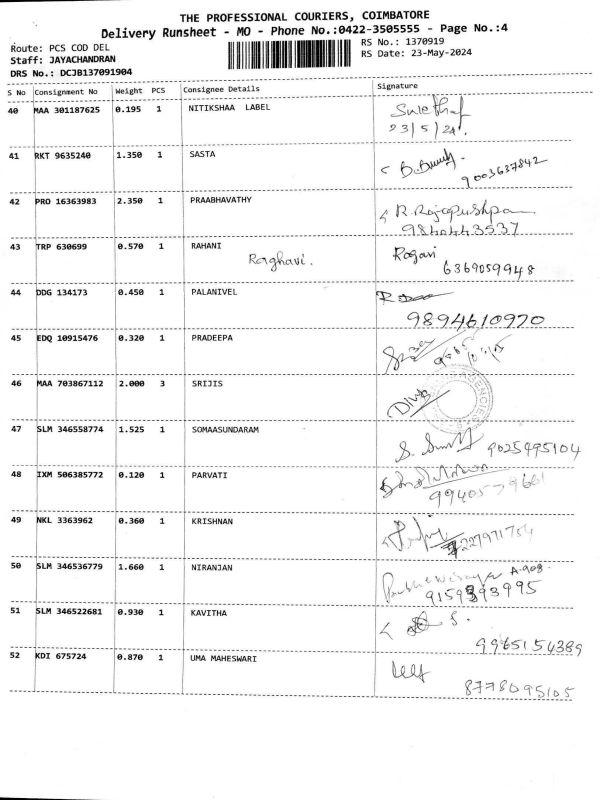 THE PROFESSIONAL COURIERS, COIMBATORE
Delivery Runsheet - MO - Phone No.:0422-3505555 - Page No.:4
Route: PCS COD DEL
RS No.: 1370919
Staff: JAYACHANDRAN
RS Date: 23-May-2024
DRS No.: DCJB137091904
S No Consignment No Weight PCS Consignee Details Signature
40 MAA 301187625 0.195 1 NITIKSHAA LABEL
23/5/24.
41 RKT 9635240 1.350 1 SASTA
9003637842
42 PRO 16363983 2.350 1 PRAABHAVATHY R.Rajapushpam
9840443537
43 TRP 630699 0.570 1 RAHANI Ragavi
Raghavi. 6369059948
44 DDG 134173 0.450 1 PALANIVEL
9894610970
45 EDQ 10915476 0.320 1 PRADEEPA
46 MAA 703867112 2.000 3 SRIJIS
47 SLM 346558774 1.525 1 SOMAASUNDARAM
9025495104
48 IXM 506385772 0.120 1 PARVATI
49 NKL 3363962 0.360 1 KRISHNAN
50 SLM 346536779 1.660 1 NIRANJAN A-908
51 SLM 346522681 0.930 1 KAVITHA
9965154389
52 KDI 675724 0.870 1 UMA MAHESWARI
8778095105